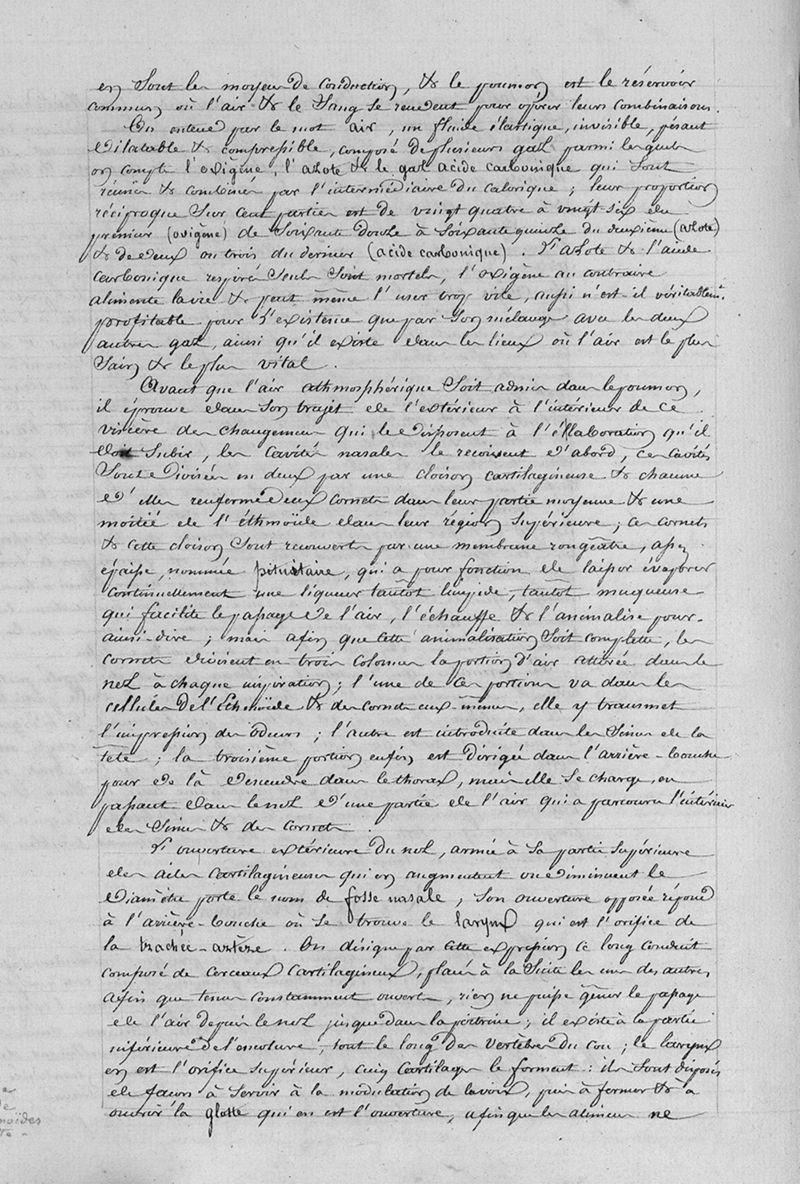 en sont les moyens de conduction, & le poumon est le réservoir
commun où l'air & le sang se rendent pour opérer leurs combinaisons.
On entend par le mot air, un fluide élastique, invisible, pesant
dilatable & compressible, composé de plusieurs gaz parmi lesquels
on compte l'oxigène, l'azote & le gaz acide carbonique qui sont
réunis & combinés par l'intermédiaire du calorique ; leur proportion
réciproque sur cent parties est de vingt quatre à vingt six du
premier (oxigène) de soixante douze à soixante quinze du deuxième (azote)
& de deux ou trois du dernier (acide carbonique). L'azote & l'acide
carbonique respirés seuls sont mortels, l'oxigène au contraire
alimente la vie & peut même l'user trop vite, aussi n'est-il véritablemt.
profitable pour l'existence que par son mélange avec les deux
autres gaz, ainsi qu'il existe dans les lieux où l'air est le plus
sain & le plus vital.
Avant que l'air athmosphérique soit admis dans le poumon,
il éprouve dans son trajet de l'extérieur à l'intérieur de ce
viscère des changemens qui le disposent à l'éllaboration qu'il
doit subir, les cavités nasales le recoivent d'abord, ces cavités
sont divisées en deux par une cloison cartilagineuse & chacune
d'elles renferme deux cornets dans leur partie moyenne & une
moitié de l'éthmoïde dans leur région supérieure ; ces cornets
& cette cloison sont recouverts par une membrane rougeâtre, assez
épaisse, nommée pituitaire, qui a pour fonction de laisser évaporer
continuellement une liqueur tantôt limpide, tantôt muqueuse
qui facilite le passage de l'air, l'échauffe & l'animalise pour-
ainsi-dire ; mais afin que cette animalisation soit complette, les
cornets divisent en trois colonnes la portion d'air attirée dans le
nez à chaque inspiration ; l'une de ces portions va dans les
cellules de l'Ethmoïde & des cornets eux-mêmes, elle y transmet
l'impression des odeurs ; l'autre est introduite dans les sinus de la
tête ; la troisième portion enfin est dirigée dans l'arrière-bouche
pour de là descendre dans le thorax, mais elle se charge, en
passant dans le nez d'une partie de l'air qui a parcouru l'intérieur
des sinus & des cornets.
L'ouverture extérieure du nez, armée à sa partie supérieure
des ailes cartilagineuses qui en augmentent ou diminuent le
diamètre porte le nom de fosse nasale, son ouverture opposée répond
à l'arrière-bouche où se trouve le larynx qui est l'orifice de
la trachée-artère. On désigne par cette expression ce long conduit
composé de cerceaux cartilagineux, placés à la suite les uns des autres,
afin que tenus constamment ouverts, rien ne puisse gêner le passage
de l'air depuis le nez jusque dans la poitrine ; il existe à la partie
inférieure de l'encolure, tout le long des vertèbres du cou ; le larynx
en est l'orifice supérieur, cinq cartilages le forment : ils sont disposés
de façon à servir à la modulation de la voix, puis à fermer & à
ouvrir la glotte qui en est l'ouverture, afin que les alimens ne